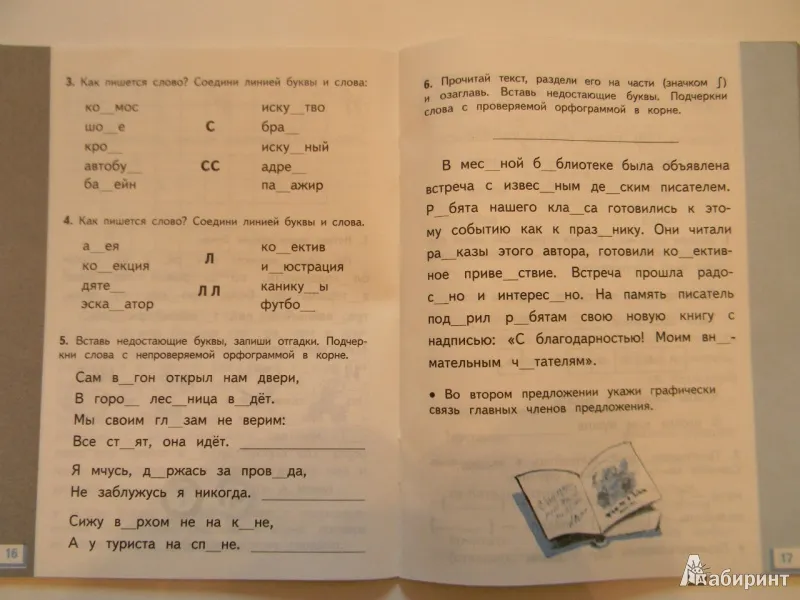 3. Как пишется слово? Соедини линией буквы и слова:
ко__мос
шо__е
кро__
автобу__
ба__ейн
С
СС
иску__тво
бра__
иску__ный
адре__
па__ажир
4. Как пишется слово? Соедини линией буквы и слова.
а__ея
ко__екция
дяте__
эска__атор
Л
ЛЛ
ко__ектив
и__юстрация
канику__ы
футбо__
5. Вставь недостающие буквы, запиши отгадки. Подчерк-
ни слова с непроверяемой орфограммой в корне.
Сам в__гон открыл нам двери,
В горо__ лес__ница в__дёт.
Мы своим гл__зам не верим:
Все ст__ят, она идёт.
Я мчусь, д__ржась за пров__да,
Не заблужусь я никогда.
Сижу в__рхом не на к__не,
А у туриста на сп__не.
16
6. Прочитай текст, раздели его на части (значком ʃ)
и озаглавь. Вставь недостающие буквы. Подчеркни
слова с проверяемой орфограммой в корне.
В мес__ной б__блиотеке была объявлена
встреча с извес__ным де__ским писателем.
Р__бята нашего кла__са готовились к это-
му событию как к праз__нику. Они читали
ра__казы этого автора, готовили ко__ектив-
ное приве__ствие. Встреча прошла радо-
с__но и интерес__но. На память писатель
под__рил р__бятам свою новую книгу с
надписью: «С благодарностью! Моим вн__-
мательным ч__тателям».
• Во втором предложении укажи графически
связь главных членов предложения.
17
Лабиринт